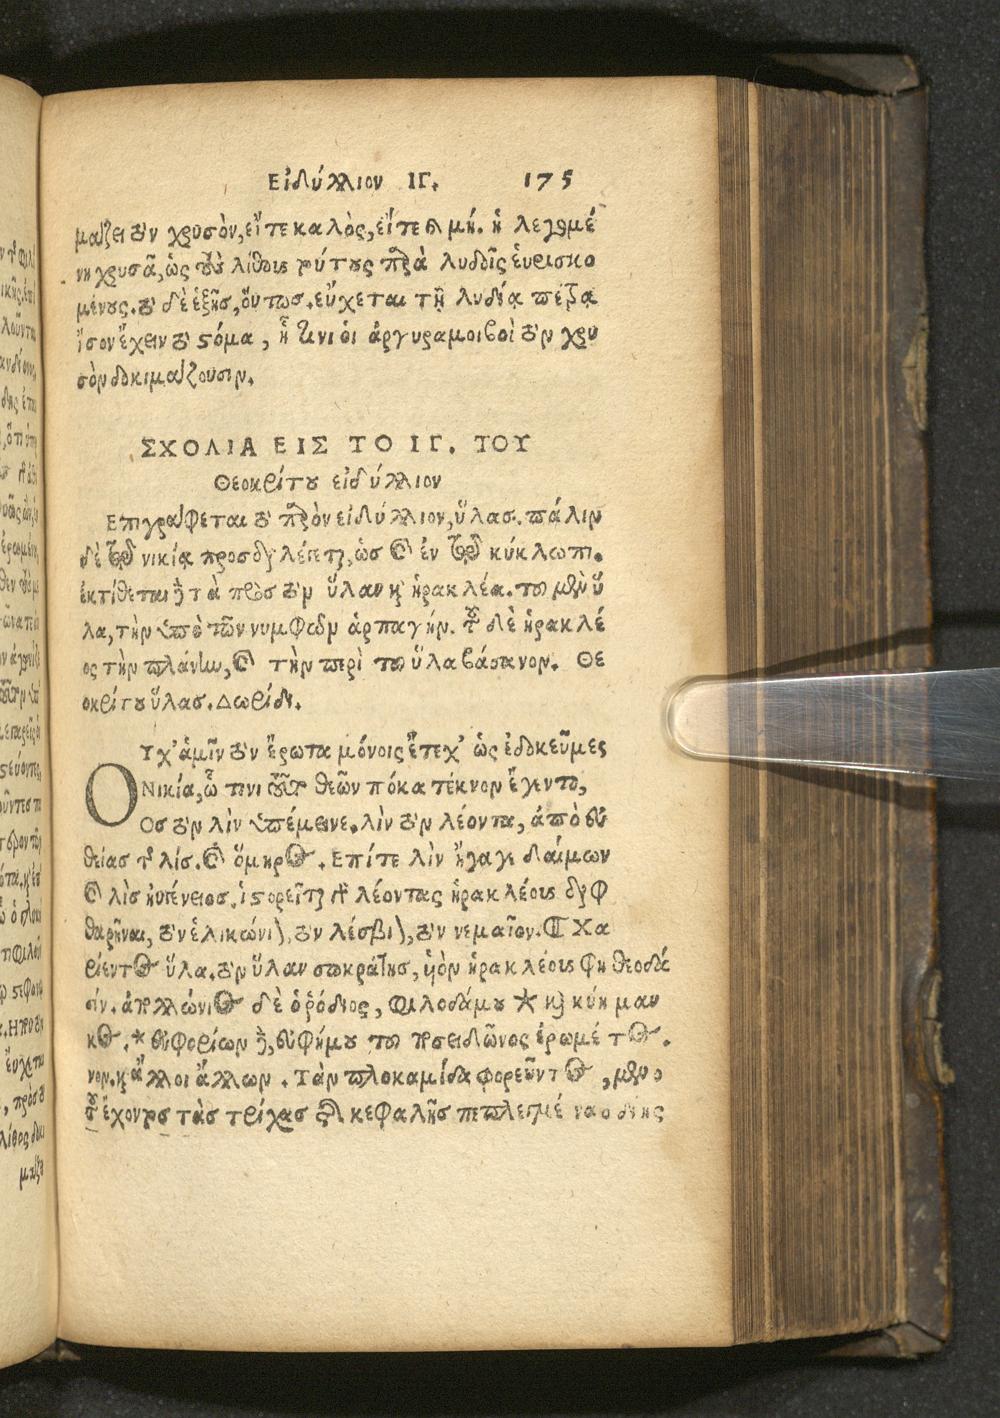 Εἰδύλλιον ΙΓ. 175
μάζει τὸν χρυσὸν, εἴτε καλὸς, εἴτε καὶ μή. ἡ λεγομέ
νη χρυσᾶ, ὡς τοὺς λίθοις τούτους παρὰ λυδοῖς εὑρισκο
μένους. τὸ δὲ ἑξῆς, οὕτως. εὔχεται τῇ λυδίᾳ πέτρᾳ
ἴσον ἔχειν τὸ στόμα, ᾗ τινι οἱ ἀργυραμοιβοὶ τὸν χρυ
σὸν δοκιμάζουσιν.
ΣΧΟΛΙΑ ΕΙΣ ΤΟ ΙΓ. ΤΟΥ
Θεοκρίτου εἰδύλλιον
Επιγράφεται τὸ παρὸν εἰδύλλιον, ὕλας. πάλιν
δὲ τῷ νικίᾳ προσδιαλέγεται, ὡς καὶ ἐν τῷ κύκλωπι.
ἐκτίθεται δὲ τὰ πρὸς τὸν ὕλαν καὶ ἡρακλέα. τοῦ μὲν ὕ
λα, τὴν ὑπὸ τῶν νυμφῶν ἁρπαγήν. τοῦ δὲ ἡρακλέ
ος τὴν πλάνην, καὶ τὴν περὶ τοῦ ὕλα βάσανον. Θε
οκρίτου ὕλας. Δωρίδι.
Ουχ' ἁμῖν τὸν ἔρωτα μόνοις ἔτεχ' ὡς ἐδοκεῦμες
Νικία, ὧ τινι τοῦτο θεῶν πόκα τέκνον ἔγεντο,
Ος τὸν λὶν ὑπέμεινε. λὶν τὸν λέοντα, ἀπὸ εὐ
θείας τῆς λίς. καὶ ὅμηρος. Επίτε λὶν ἤγαγε δαίμων
καὶ λὶς ἠυγένειος. ἱστορεῖται τρεῖς λέοντας ἡρακλέους δια φ
θαρῆναι, τὸν ἑλικώνιον, τὸν λέσβιον, τὸν νεμαῖον. ¶ Χα
ρίεντος ὕλα. τὸν ὕλαν σωκράτης, υἱὸν ἡρακλέους φησὶ θεοδά
σιν. ἀπολλώνιος δὲ ὁ ῥόδιος, φιλοδάμου * καὶ κύκμαν
κος. * εὐφορίων δὲ, εὐφήμου τοῦ ποσειδῶνος ἐρωμέ τος.
νον. καὶ ἄλλοι ἄλλων. Τὰν πλοκαμίδα φορεῦντος, μὲν ο
τοῦ ἔχοντος τὰς τρίχας τῆς κεφαλῆς πεπλεγμέ νας ὁ δινης